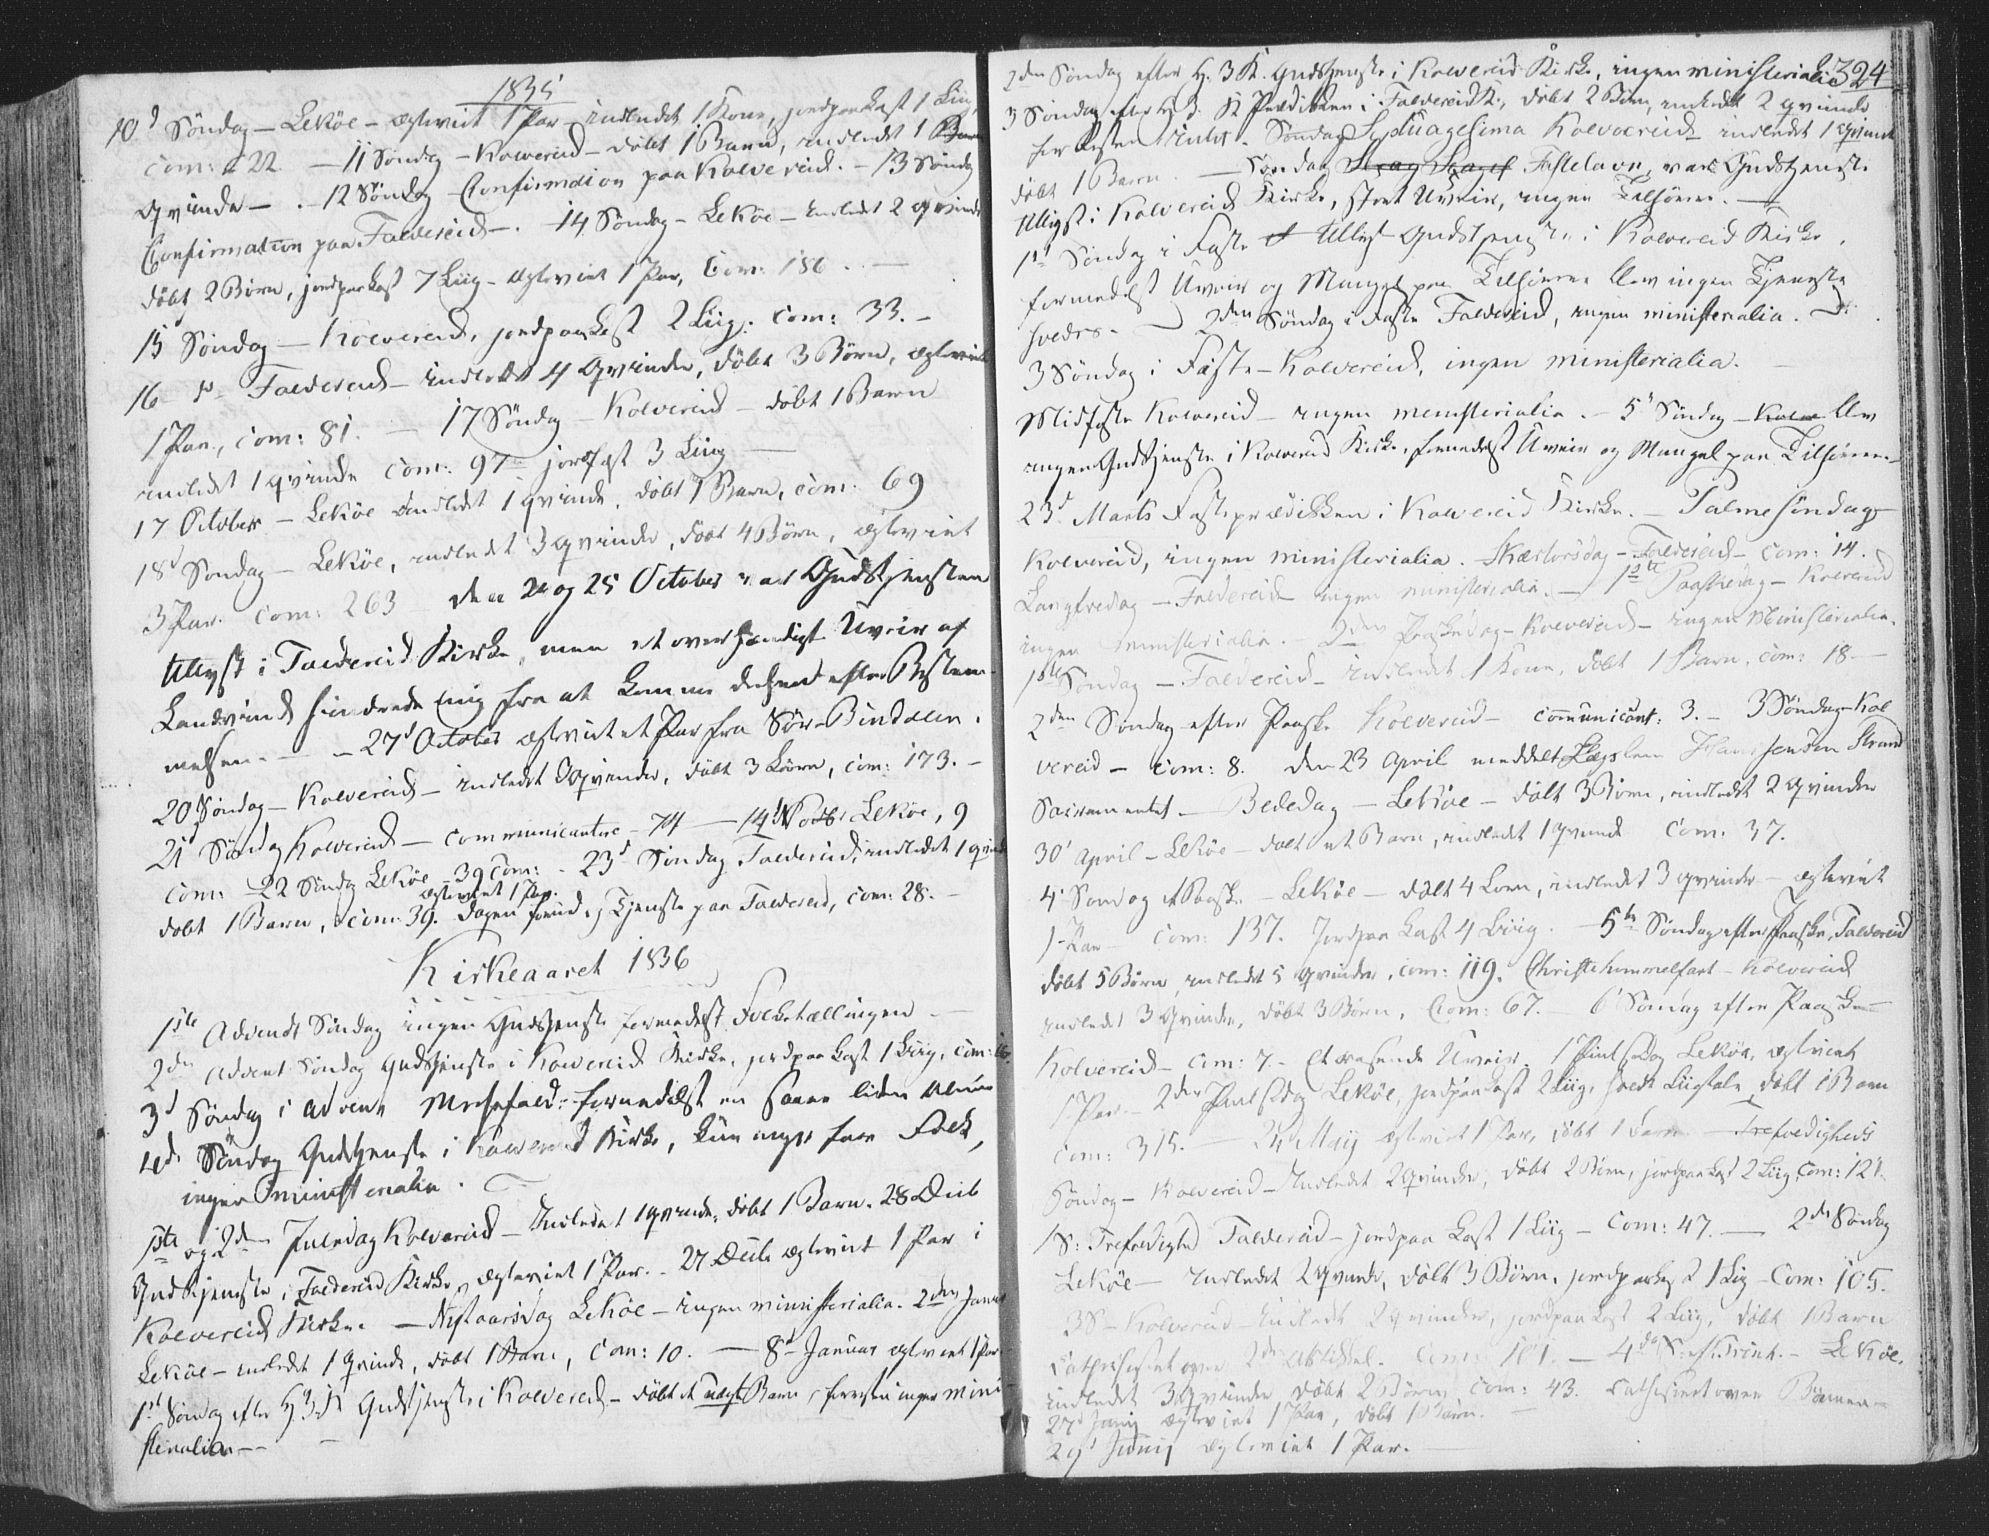 1835
10d Søndag — Lekøe — ægteviet 1 Par — indledet 1 Kone, jordpaakast 1 Liig,
com: 22. — 11 Søndag — Kolvereid — døbt 1 Barn, indledt 1 Barn
Qvinde — . — 12 Søndag Confirmation paa Kolvereid. — 13 Søndag
Confirmation paa Foldereid —. 14 Søndag — Lekøe — indledt 2 qvinder
døbt 2 Børn, jordpaakast 7 Liig — ægteviet 1 Par, Com: 186. —
15 Søndag — Kolvereid, jordpaakast 2 Liig. Com: 33. —
16 — Foldereid — indledet 4 Qvinder, døbt 3 Børn, ægteviet
1 Par, com: 81. — 17 Søndag — Kolvereid — døbt 1 Barn
indledt 1 qvinde com: 97 — jordfæst 3 Liig —
17 October — Lekøe indledt 1 qvinde, døbt 1 Barn, com: 69
18d Søndag — Lekøe, indledet 3 qvinder, døbt 4 Børn, ægteviet
3 Par. Com: 263 — den 24 og 25 October var Gudstjenesten
tillyst i Foldereid Kirke, men et overhændigt Uveir af
Landvind hindrede mig fra at komme derhen efter Bestem-
melsen. — — 27d October ægteviet et Par fra Sør-Bindalen.
20d Søndag — Kolvereid — indledt 3 Qvinder, døbt 3 Børn, com: 173. —
21d Søndag Kolvereid — communicantere — 74 — 14d Novbr Lekøe, 9
Com: 22 Søndag Lekøe — 39 Com: — 23d Søndag Foldereid, indledet 1 qvinde
ægteviet 1 Par.
døbt 1 Barn, com: 39. Dagen forud, Tjeneste paa Foldereid, com: 28. —
Kirkeaaret 1836
1ste Advents Søndag ingen Gudstjeneste formedelst Folketællingen —
2den Advent Søndag Gudstjeneste i Kolvereid Kirke, jordpaakast 1 Liig, com:
3d Søndag i Advent Messefald formedelst en saare liden Almue
4de Søndag Gudstjeneste i Kolvereid Kirke, kun meget faae Folk,
ingen ministerialia. —
1ste og 2den Juledag Kolvereid — Indledet 1 qvinde, døbt 1 Barn. 28 Decb
Gudstjeneste i Foldereid Kirke, ægteviet 1 Par. — 27 Decb ægteviet 1 Par i
Kolvereid Kirke. — Nytaarsdag Lekøe — ingen ministerialia. 2den Januar
Lekøe — indledt 1 Qvinde, døbt 1 Barn, Com: 10. — 8d Januar ægteviet 1 Par
1ste Søndag efter H 3 K Gudstjeneste i Kolvereid — døbt et uægt Barn, forresten ingen mini-
sterialia — —
324
2den Søndag efter H. 3 K. Gudstjeneste i Kolvereid Kirke, ingen ministerialia
3 Søndag efter H. 3. K Prædiken i Foldereid K., døbt 2 Børn, indledt 2 qvinder
forresten Intet. Søndag Septuagesima Kolvereid indledet 1 Qvinde
døbt 1 Barn. — Søndag Fastelavn, var Gudstjeneste
tillyst i Kolvereid Kirke, stort Uveir, ingen Tilhørere. —
1ste Søndag i Faste tillyst Gudstjeneste i Kolvereid Kirke,
formedelst Uveir og Mangel paa Tilhørere blev ingen Tjeneste
— 2den Søndag i Faste Foldereid, ingen ministerialia. —
3 Søndag i Faste — Kolvereid, ingen ministerialia. —
Midfaste Kolvereid — ingen ministerialia. — 5' Søndag — blev
ingen Gudstjeneste i Kolvereid Kirke, formedelst Uveir og Mangel paa Tilhørere. —
23d Marts Fasteprædikken i Kolvereid Kirke. — Palmesøndag
Kolvereid, ingen ministerialia. Skærtorsdag — Foldereid — Com: 14.
Langfredag — Foldereid ingen ministerialia. — 1ste Paaskedag — Kolvereid
ingen ministerialia. — 2den Paaskedag — Kolvereid — ingen Ministerialia.
1ste Søndag — Foldereid — indledet 1 Kone, døbt 1 Barn, com: 18. —
2den Søndag efter Paaske Kolvereid — communicant: 3. — 3 Søndag Kol
vereid — Com: 8. Den 23 April meddelt Hans Jensen Strand
Sacramentet. — Bededag — Lekøe — døbt 3 Børn, indledt 2 Qvinder
30' April — Lekøe — døbt et Barn, indledet 1 Qvinde Com: 37.
4' Søndag e. Paaske — Lekøe — døbt 4 Børn, indledt 3 qvinder — ægteviet
1 Par — Com: 137. Jordpaakast 4 Liig. — 5te Søndag efter Paaske, Foldereid
døbt 5 Børn, indledt 5 qvinder, com: 119. Christi himmelfart — Kolvereid
indledet 3 Qvinder, døbt 3 Børn, Com: 67. 6' Søndag efter Paaske —
Kolvereid — Com: 7. Et rasende Uveir. 1 Pintsedag Lekøe, ægteviet
1 Par. — 2den Pintsedag Lekøe, jordpaakast 2 Liig, holdt Liigtale, døbt 1 Barn
Com: 315. — 24 Maij ægteviet 1 Par, døbt 1 Barn — Trefoldigheds
Søndag — Kolvereid — Indledet 2 Qvinder, døbt 2 Børn, jordpaakast 2 Liig, Com: 121.
1 S: Trefoldighed Foldereid — jordpaakast 1 Liig — Com: 47. — 2den Søndag
Lekøe — Indledet 2 Qvinder, døbt 3 Børn, jordpaakast 1 Liig — Com: 105.
3 S — Kolvereid — Indledt 2 qvinder, jordpaakast 2 Liig, døbt 1 Barn
Catechiseret over 2den Artikkel. Com: 101. — 4de S. ef. Trinit. — Lekøe,
indledet 3 Qvinder døbt 2 Børn, Com: 43. catechiseret over Bønnen —
27d Junij ægteviet 1 Par, døbt 1 Barn. —
29d Junij ægteviet 1 Par. —